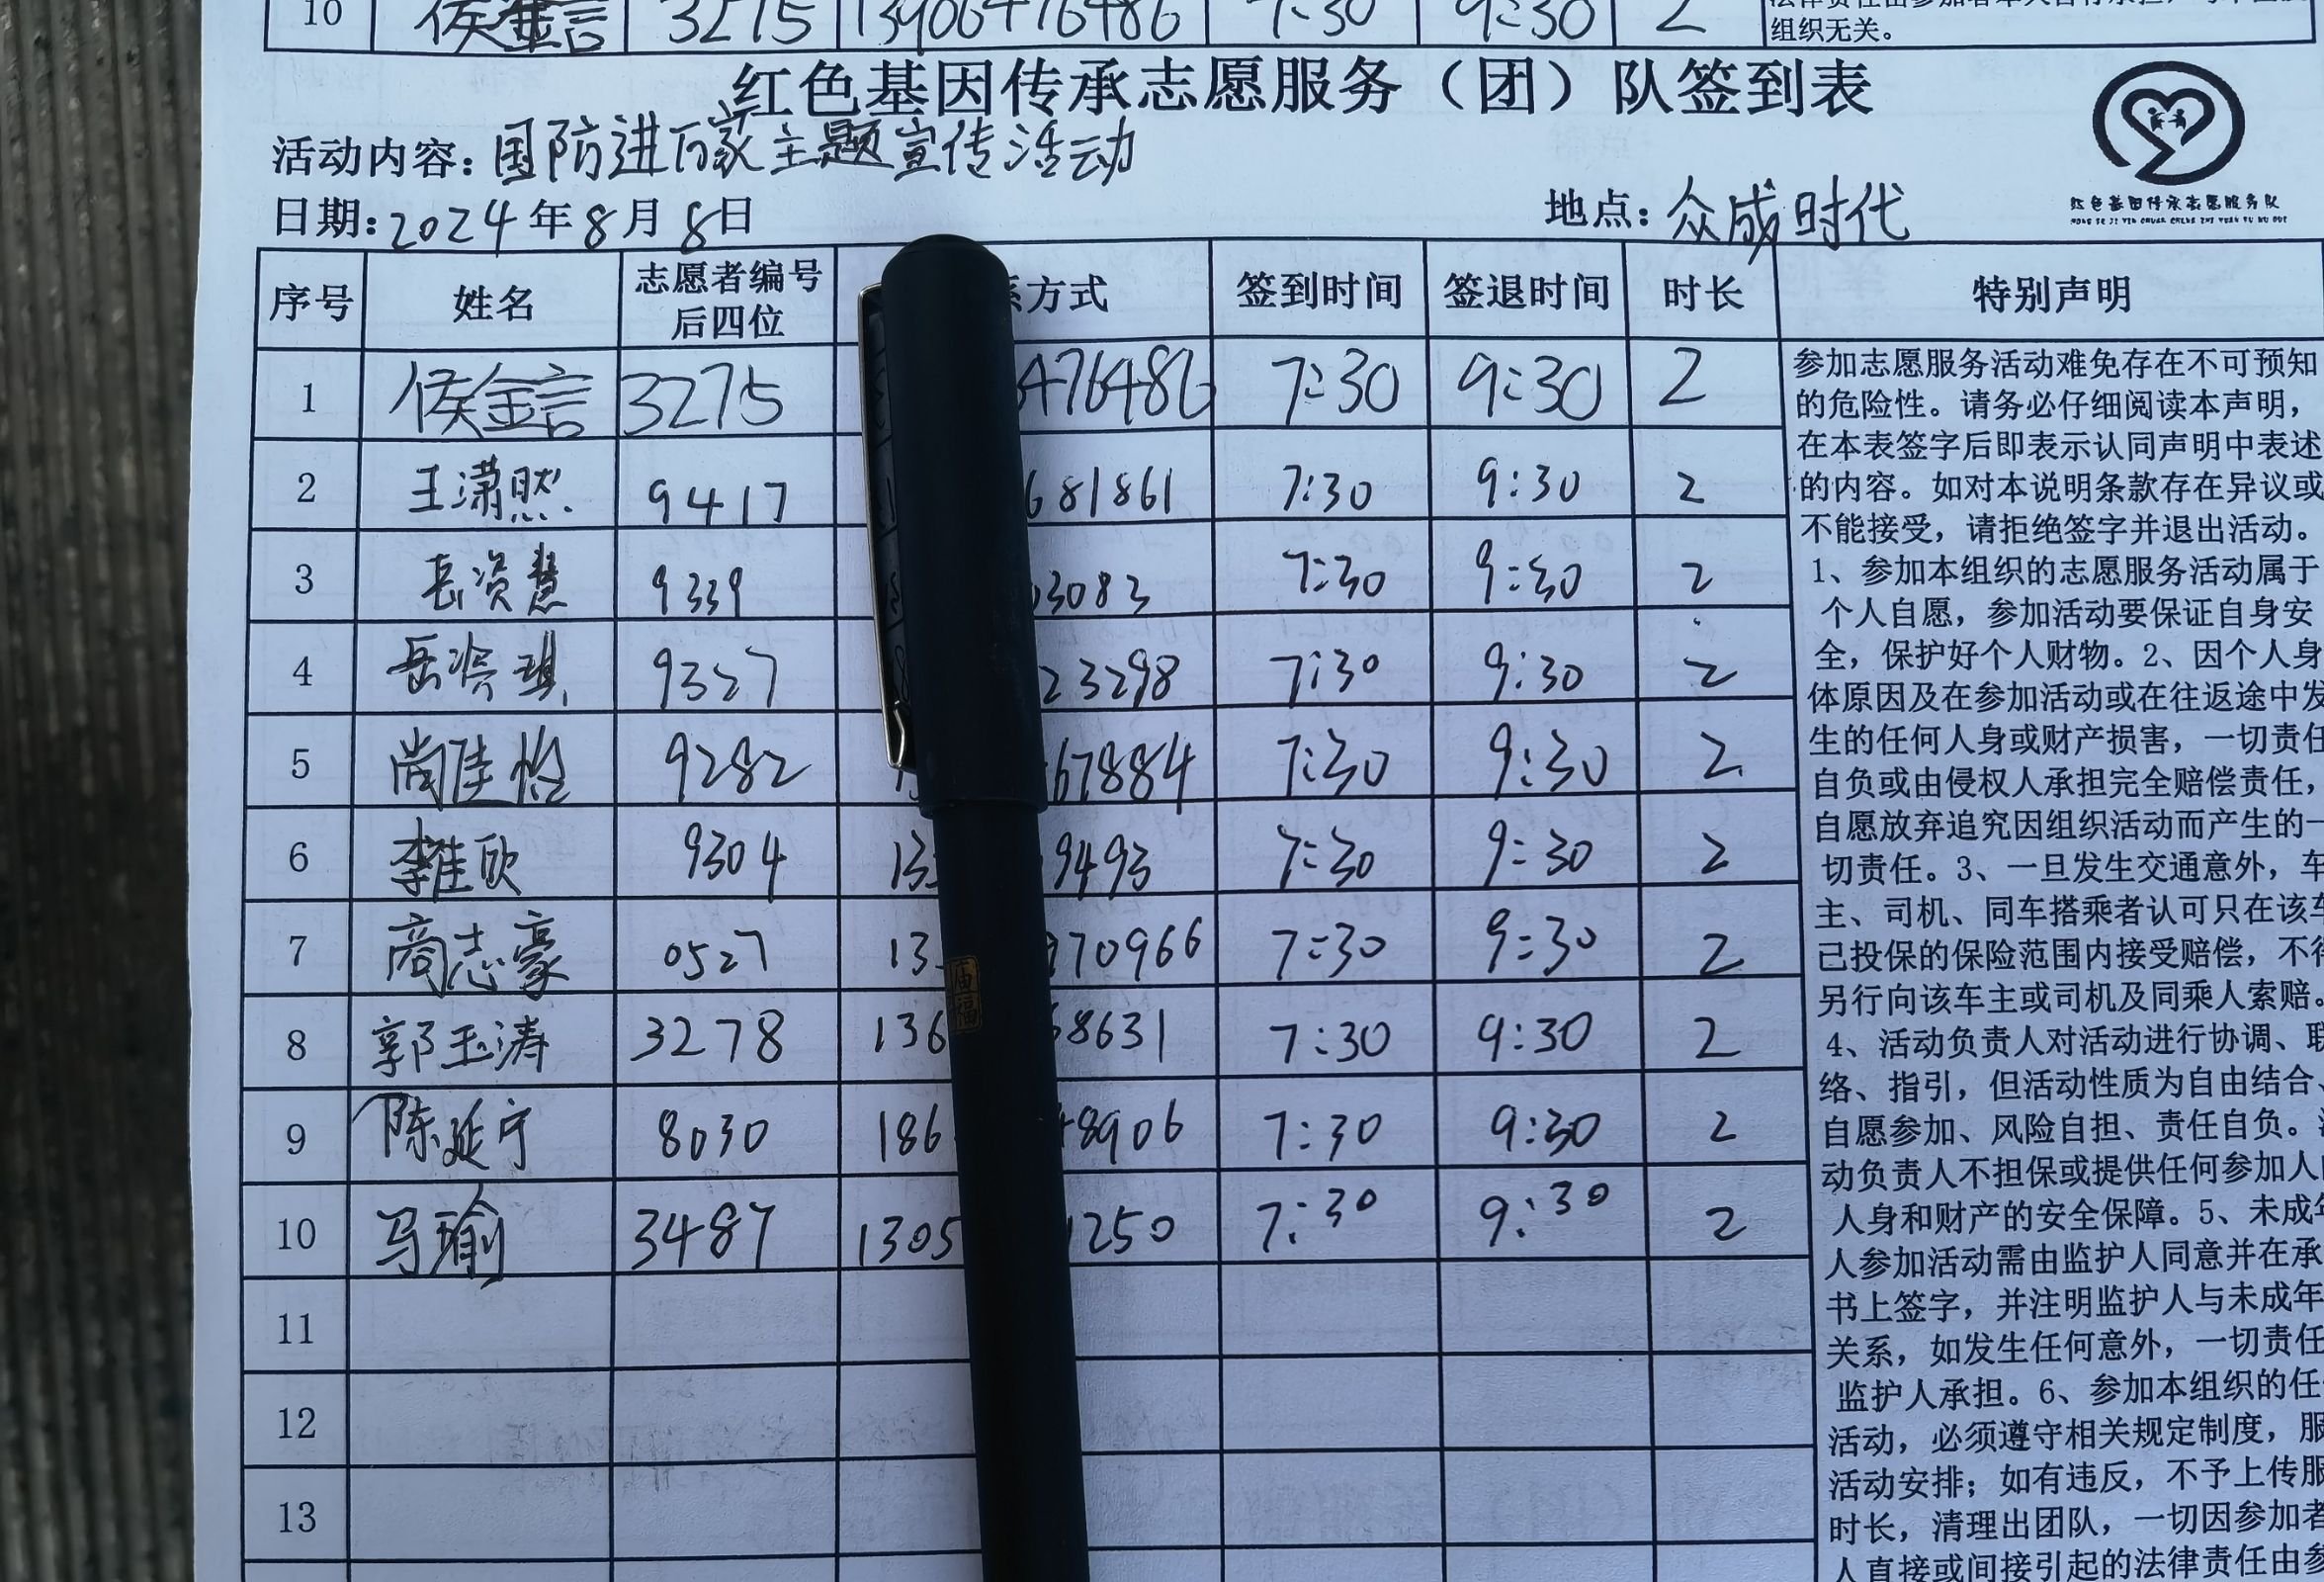 10 侯金言 3275 13906476486 7:30 9:30 2
组织无关。
红色基因传承志愿服务（团）队签到表
活动内容：国防进万家主题宣传活动
红色基因传承志愿服务队
日期：2024年8月8日 地点：众成时代
序号 姓名 志愿者编号后四位 系方式 签到时间 签退时间 时长 特别声明
1 侯金言 3275 476486 7:30 9:30 2
2 王潇然 9417 681861 7:30 9:30 2
3 岳资慧 9339 3083 7:30 9:30 2
4 岳资琪 9327 23298 7:30 9:30 2
5 尚佳怡 9282 67884 7:30 9:30 2
6 李佳欣 9304 13 9493 7:30 9:30 2
7 商志豪 0527 13 970966 7:30 9:30 2
8 郭玉涛 3278 136 8631 7:30 9:30 2
9 陈延宁 8030 186 8906 7:30 9:30 2
10 马瑜 3487 1305 1250 7:30 9:30 2
11
12
13
参加志愿服务活动难免存在不可预知
的危险性。请务必仔细阅读本声明，
在本表签字后即表示认同声明中表述
的内容。如对本说明条款存在异议或
不能接受，请拒绝签字并退出活动。
1、参加本组织的志愿服务活动属于
个人自愿，参加活动要保证自身安
全，保护好个人财物。2、因个人身
体原因及在参加活动或在往返途中发
生的任何人身或财产损害，一切责任
自负或由侵权人承担完全赔偿责任，
自愿放弃追究因组织活动而产生的一
切责任。3、一旦发生交通意外，车
主、司机、同车搭乘者认可只在该车
已投保的保险范围内接受赔偿，不得
另行向该车主或司机及同乘人索赔。
4、活动负责人对活动进行协调、联
络、指引，但活动性质为自由结合、
自愿参加、风险自担、责任自负。
动负责人不担保或提供任何参加人
人身和财产的安全保障。5、未成年
人参加活动需由监护人同意并在承
书上签字，并注明监护人与未成年
关系，如发生任何意外，一切责任
监护人承担。6、参加本组织的任
活动，必须遵守相关规定制度，服
活动安排；如有违反，不予上传服
时长，清理出团队，一切因参加者
人直接或间接引起的法律责任由参
庙福